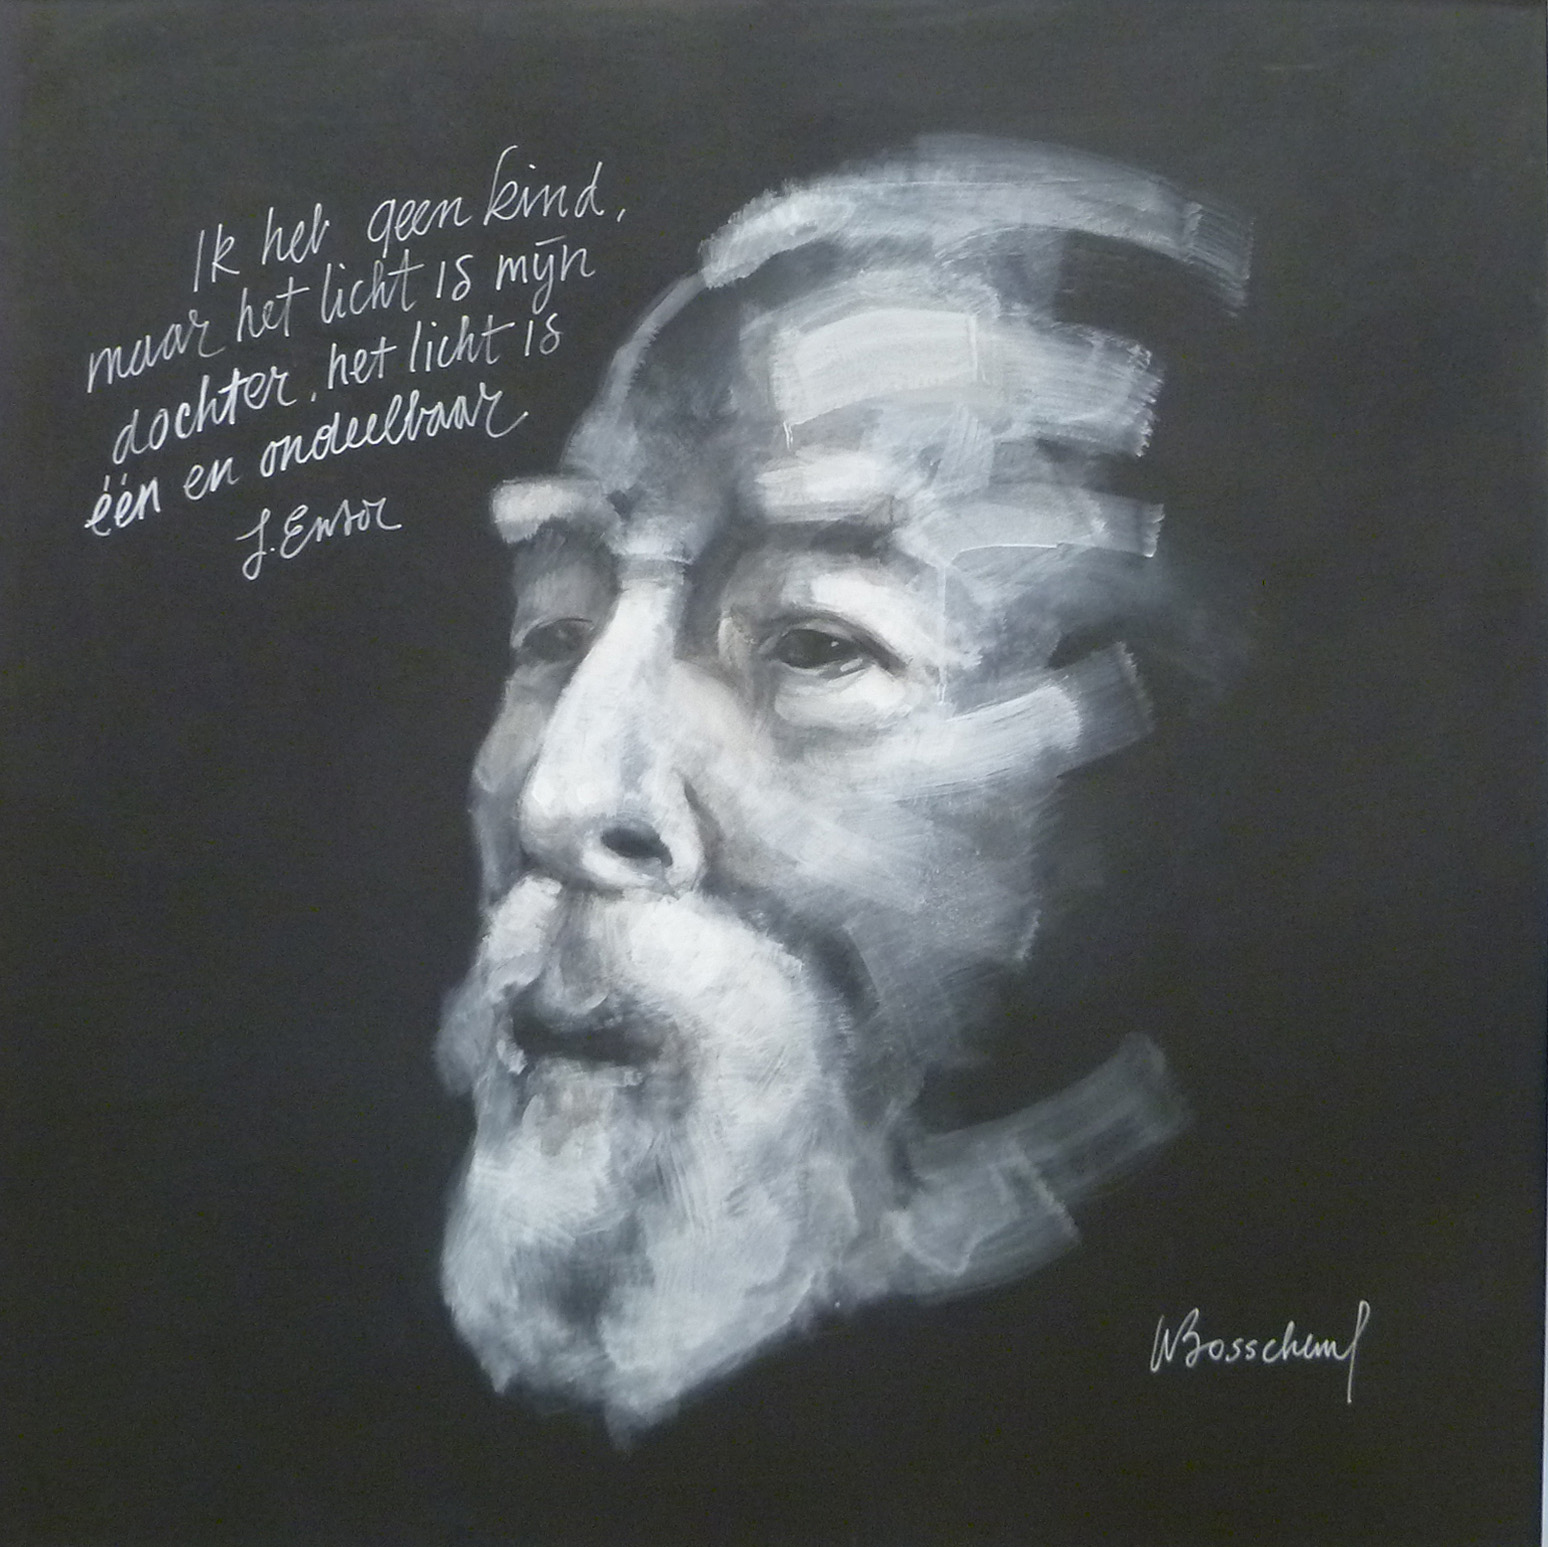 Ik heb geen kind,
maar het licht is mijn
dochter, het licht is
één en ondeelbaar
J. Ensor